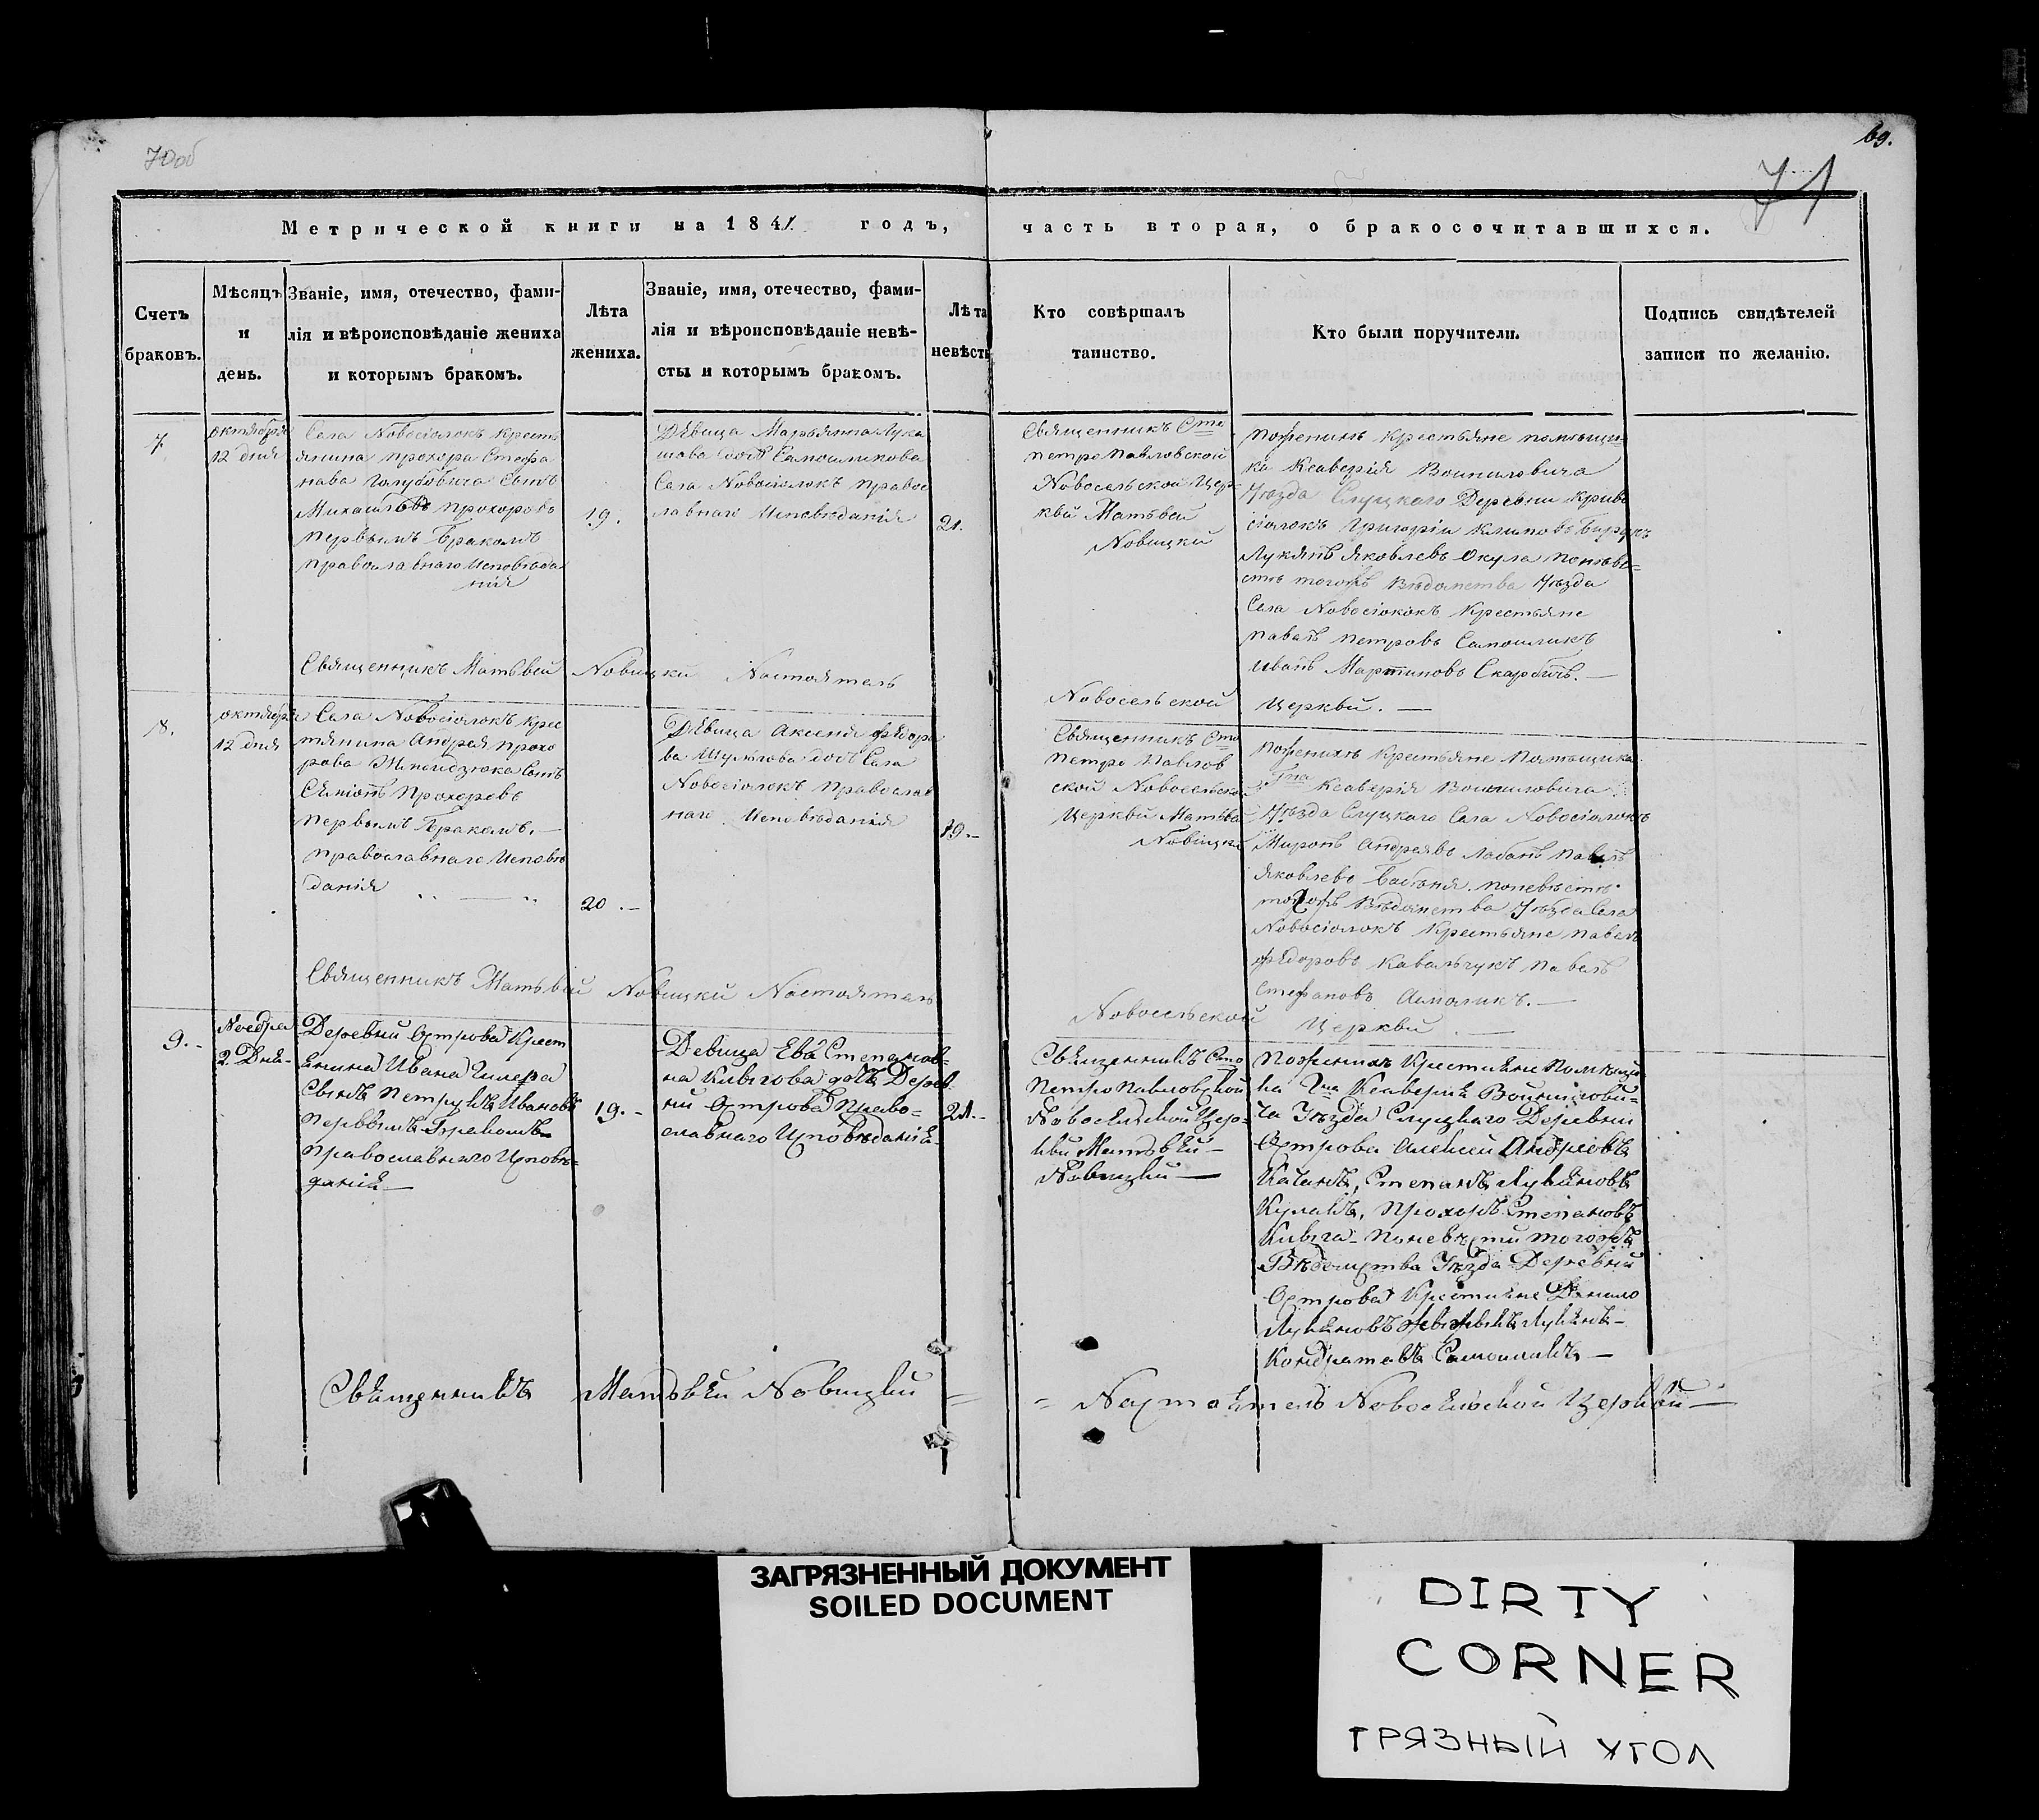 70об
69.
71
Метрической книги на 1841 годъ, часть вторая, о бракосочитавшихся.
Счетъ браковъ.
Мѣсяцъ и день.
Званіе, имя, отечество, фами-
лія и вѣроисповѣданіе жениха
и которымъ бракомъ.
Лѣта жениха.
Званіе, имя, отечество, фами-
лія и вѣроисповѣданіе невѣ-
сты и которымъ бракомъ.
Лѣта невѣсты
Кто совѣршалъ
таинство.
Кто были поручители.
Подпись свидѣтелей
записи по желанію.
7
октября
12 дня
Села Новосіолокъ крестъ
янина прохора Стефа
нава Голубовича Сынъ
Михаилъ прохоровъ
первымъ Бракомъ
православнаго Исповѣда
нія
19.
Дѣвица Марьянна Лука
шова дочь Самошликова
Села Новосіолокъ правос
лавнаго Исповѣданія
21.
Священникъ Сто
петро павловской
Новосельской Цер-
квй Матьвей
Новицкй
пожениху крестьяне помѣщи-
ка Ксаверія Войниловича
Уѣзда Слуцкого Деревни криво
сіолокъ Григорій климовъ
Лукянъ Яковлевъ Окула поневѣ-
стѣ тогожъ Вѣдомства Уѣзда
Села Новосіолокъ крестьяне
павалъ петровъ Самошликъ
иванъ Мартиновъ Скарбичъ.
Священникъ Матьвей Новицкй Настоятель
Новосельской Церквй.
8.
октября
12 дня
Села Новосіолокъ крес
тянина Андрея прохо
рова Сынъ
Сѣміонъ Прохоровъ
первымъ Бракомъ.
православнаго Исповѣ
данія
20.
Дѣвица Аксеня Фѣдоро
ва дочь Села
Новосіолокъ православ
наго Исповѣданія
19.
Священникъ Сто
петро павлов
ской Новосельской
Церквй Матьвей
Новицкй
пожениху крестьяне помѣщика
Гна Ксаверія Войниловича
Уѣзда Слуцкаго Села Новосіолокъ
Миронъ Андреявъ Лабанъ павалъ
Яковлевъ поневѣстѣ
тогожъ Вѣдомства Уѣзда Села
Новосіолокъ крестьяне павалъ
фѣдоровъ кавальчукъ павалъ
Стефановъ
Священникъ Матьвей Новицкй Настоятель
Новосельской Церквй.
9.
Ноебра
2. Дня
Деревни Острова Крест
янина Ивана
Сынъ Петрукъ Ивановъ
Первымъ Бракомъ
Православнаго Исповѣ-
данія
19.
Девица Ева Степанов-
на дочь Дерев-
ни Острова Право-
славнаго Исповѣданія
21.
Священникъ Сто
Петро Павловской
Новосельской Цер-
кви Матьвей
Новицкй
Пожениху Крестьяне Помѣщи-
ка Гна Ксаверія Войнилови-
ча Уѣзда Слуцкаго Деревни
Острова Алексей Андреовъ
Качанъ, Степанъ Лукяновъ
Кулакъ, Прохоръ Степановъ
Поневѣсти тогожъ
Вѣдомства Уѣзда Деревни
Острова Крестьяне Данило
Лукяновъ Лукянъ
Кондратовъ Самошликъ
Священникъ Матьвей Новицкй
Настоятель Новосельской Церквй
ЗАГРЯЗНЕННЫЙ ДОКУМЕНТ
SOILED DOCUMENT
DIRTY
CORNER
ГРЯЗНЫЙ УГОЛ